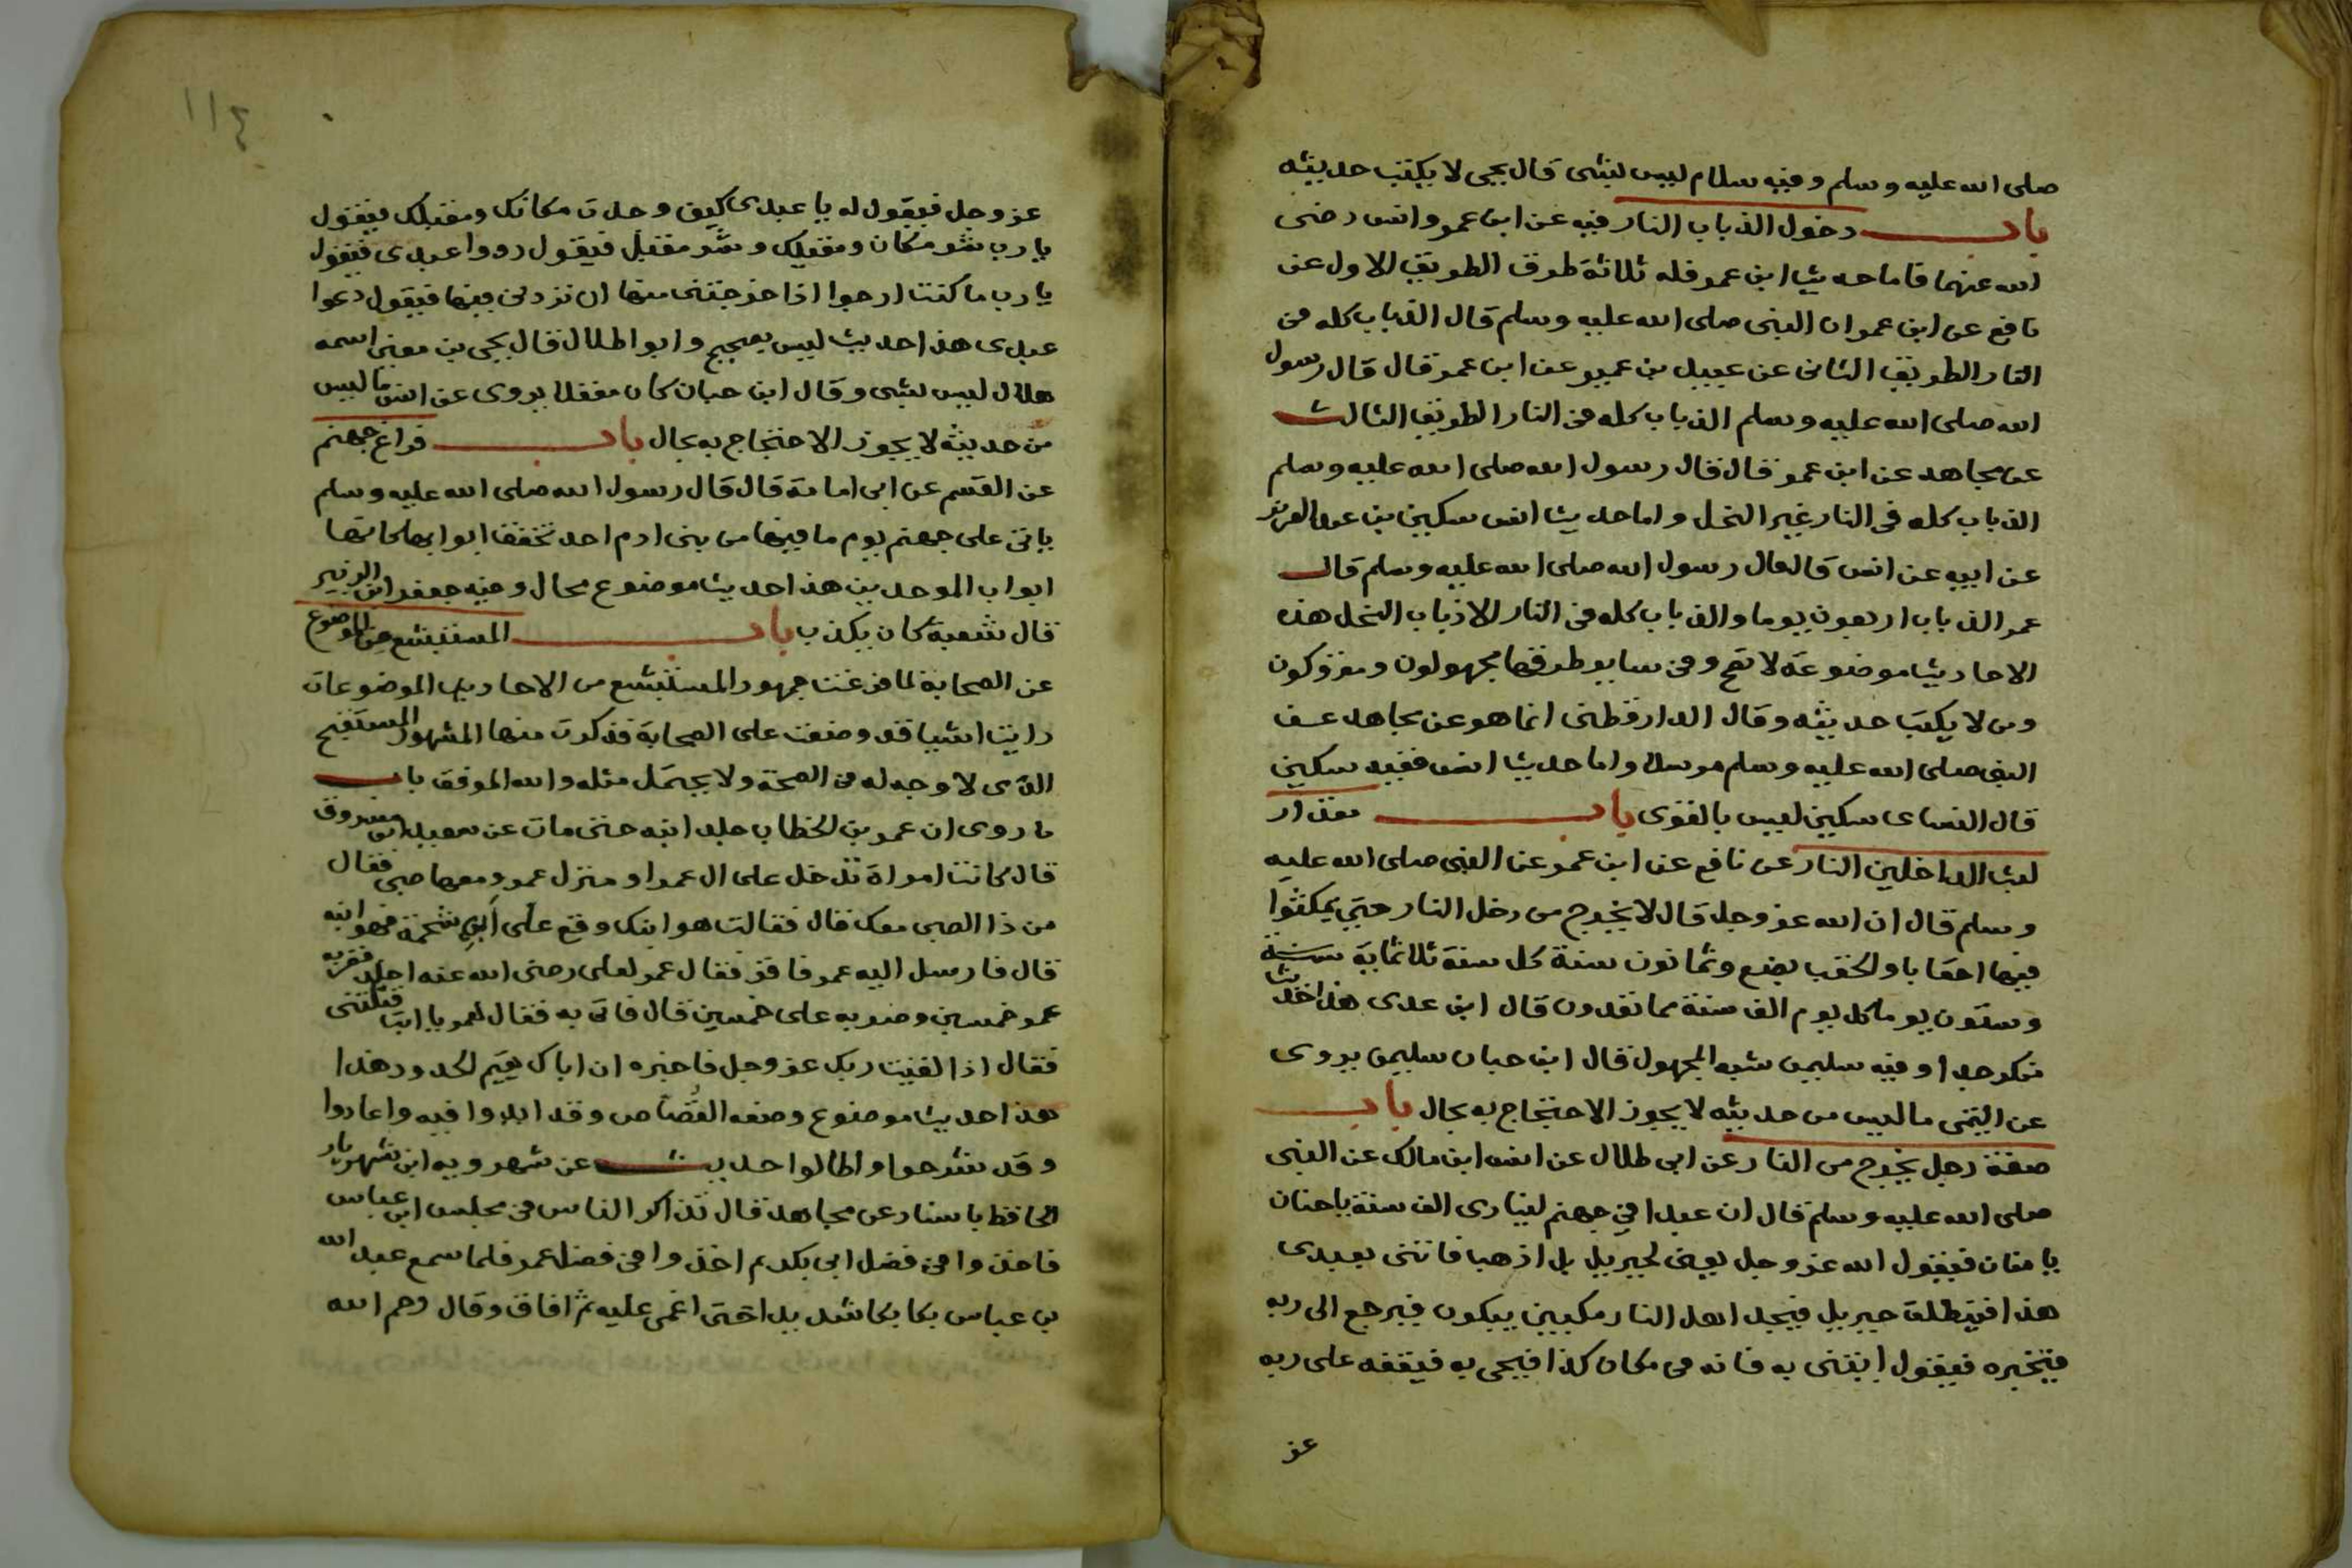 صلى الله عليه وسلم وفيه سلام ليس بشى قال يحيى لا يكتب حديثه
باب دخول الذباب النار فيه عن ابن عمر وانس رضى
الله عنهما فاما حديث ابن عمر فله ثلاثة طرق الطريق الاول عن
نافع عن ابن عمر ان النبى صلى الله عليه وسلم قال الذباب كله فى
النار الطريق الثانى عن عبيد بن عمير عن ابن عمر قال قال رسول
الله صلى الله عليه وسلم الذباب كله فى النار الطريق الثالث
عن مجاهد عن ابن عمر قال قال رسول الله صلى الله عليه وسلم
الذباب كله فى النار غير النحل واما حديث انس سكين بن عبد العزيز
عن ابيه عن انس قال قال رسول الله صلى الله عليه وسلم قال
عمر الذباب اربعون يوما والذباب كله فى النار الا ذباب النحل هذه
الاحاديث موضوعة لا تصح وفى ساير طرقها مجهولون ومتروكون
ومن لا يكتب حديثه وقال الدارقطنى انما هو عن مجاهد عن
النبى صلى الله عليه وسلم مرسلا واما حديث انس ففيه سكين
قال النساى سكين ليس بالقوى باب مقدار
لبث الداخلين النار عن نافع عن ابن عمر عن النبى صلى الله عليه
وسلم قال ان الله عز وجل قال لا يخرج من دخل النار حتى يمكثوا
فيها احقابا والحقب بضع وثمانون سنة كل سنة ثلاثماية سنة
وستون يوما كل يوم الف سنة مما تعدون قال ابن عدى هذا حديث
منكر جدا وفيه سليمن شبه المجهول قال ابن حبان سليمن يروى
عن التيمى ما ليس من حديثه لا يجوز الاحتجاج به بحال باب
صفة رجل يخرج من النار عن ابى طلال عن انس ابن مالك عن النبى
صلى الله عليه وسلم قال ان عبدا فى جهنم لينادى الف سنة يا حنان
يا منان فيقول الله عز وجل يعنى لجبريل بل اذهب فاتنى بعبدى
هذا فينطلق جبريل فيجد اهل النار مكبين يبكون فيرجع الى ربه
فيخبره فيقول ايتنى به فانه فى مكان كذا فيجى به فيقفه على ربه
عز
١١٤
عز وجل فيقول له يا عبدى كيف وجدت مكانك ومقيلك فيقول
يا رب شر مكان ومقيلك وشر مقيل فيقول ردوا عبدى فيقول
يا رب ما كنت ارجوا اذا خرجتنى منها ان تردنى فيها فيقول دعوا
عبدى هذا حديث ليس بصحيح وابو اطلال قال يحيى بن معين اسمه
هلال ليس بشى وقال ابن حبان كان مغفلا يروى عن انس ما ليس
من حديثه لا يجوز الاحتجاج به بحال باب فراغ جهنم
عن القسم عن ابى امامة قال قال رسول الله صلى الله عليه وسلم
ياتى على جهنم يوم ما فيها من بنى ادم احد تخفق ابوابها كانها
ابواب الموحدين هذا حديث موضوع محال وفيه جعفر ابن الزبير
قال شعبة كان يكذب باب المستبشع من الموضوع
عن الصحابة لما فرغت جمهور المستبشع من الاحاديث الموضوعات
رايت اشيا قد وضعت على الصحابة فذكرت منها المشهور المستقبح
الذى لا وجه له فى الصحة ولا يحتمل مثله والله الموفق باب
ما روى ان عمر بن الخطاب جلد ابنه حتى مات عن سعيد ابن مسروق
قال كانت امراة تدخل على ال عمر او منزل عمر ومعها صبى فقال
من ذا الصبى معك قال فقالت هو ابنك وقع على ابى شحمة فهو ابنه
قال فارسل اليه عمر فاقر فقال عمر لعلى رضى الله عنه اجلد فضربه
عمر خمسين وضربه على خمسين قال فاتى به فقال لعمر يا ابت قتلتنى
فقال اذا لقيت ربك عز وجل فاخبره ان اباك يقيم الحدود هذا
هذا حديث موضوع وضعه القصاص وقد ابدوا فيه واعادوا
وقد شرحوا واطالوا حديث عن شهرويه ابن شهريار
الحافظ باسناد عن مجاهد قال تذاكر الناس فى مجلس ابن عباس
فاخذوا فى فضل ابى بكر ثم اخذوا فى فضل عمر فلما سمع عبد الله
بن عباس بكا بكا شديدا حتى اغمى عليه ثم افاق وقال رحم الله